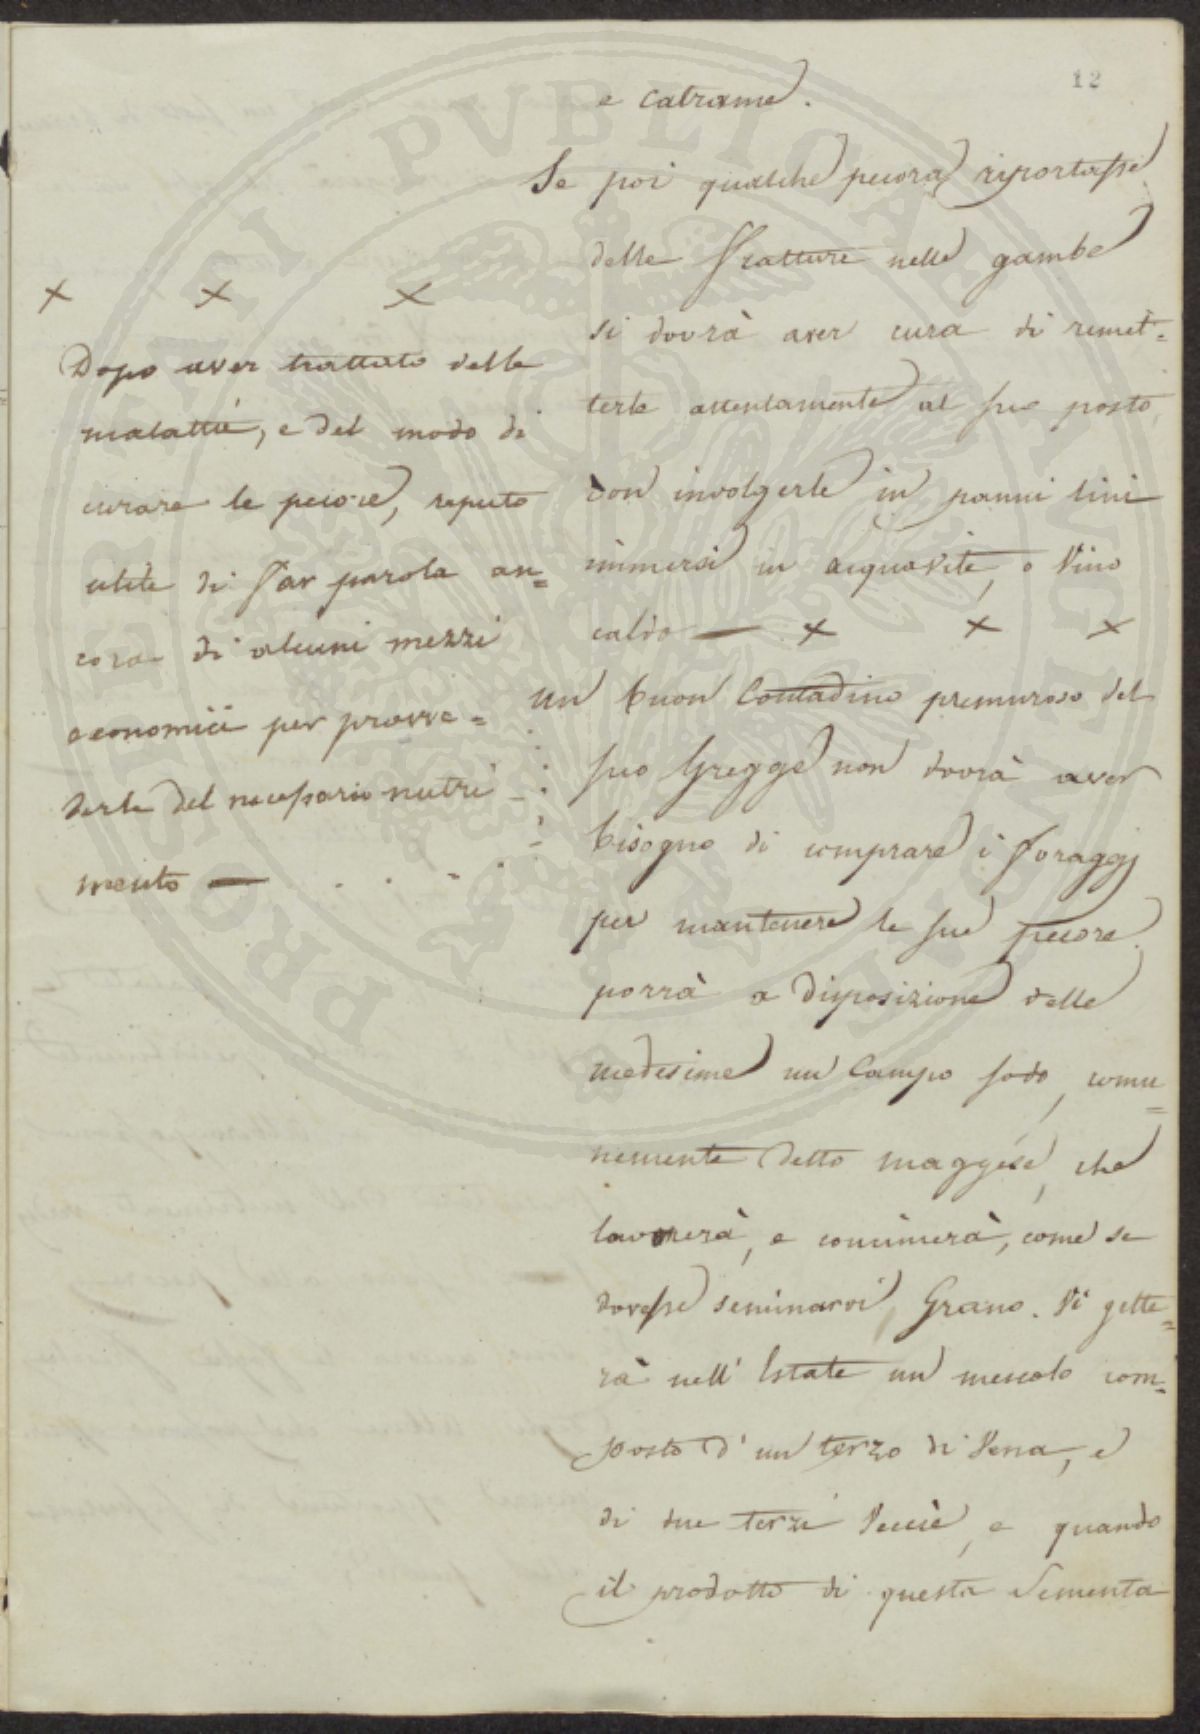 12
e catrame.
Se poi qualche pecora riportasse
delle fratture nelle gambe
si dovrà aver cura di remet=
terle attentamente al suo posto
con involgerle in panni lini
immersi in acquavite, o Vino
caldo — × × ×
un buon Contadino premuroso del
suo Gregge non dovrà aver
bisogno di comprare i foraggj
per mantenere le sue pecore.
porrà a disposizione delle
medesime un Campo sodo, comu=
nemente detto maggese, che
lavorerà, e concimerà, come se
dovesse seminarvi Grano. Vi gette=
rà nell' Estate un mescolo com=
posto d' un terzo di Vena, e
di due terzi Veccie, e quando
il prodotto di questa Sementa
× × ×
Dopo aver trattato delle
malattie, e del modo di
curare le pecore, reputo
utile di far parola an=
cora di alcuni mezzi
economici per provve=
derle del necessario nutri
mento —
PROSPERITATI PVBLICAE AVGENDAE